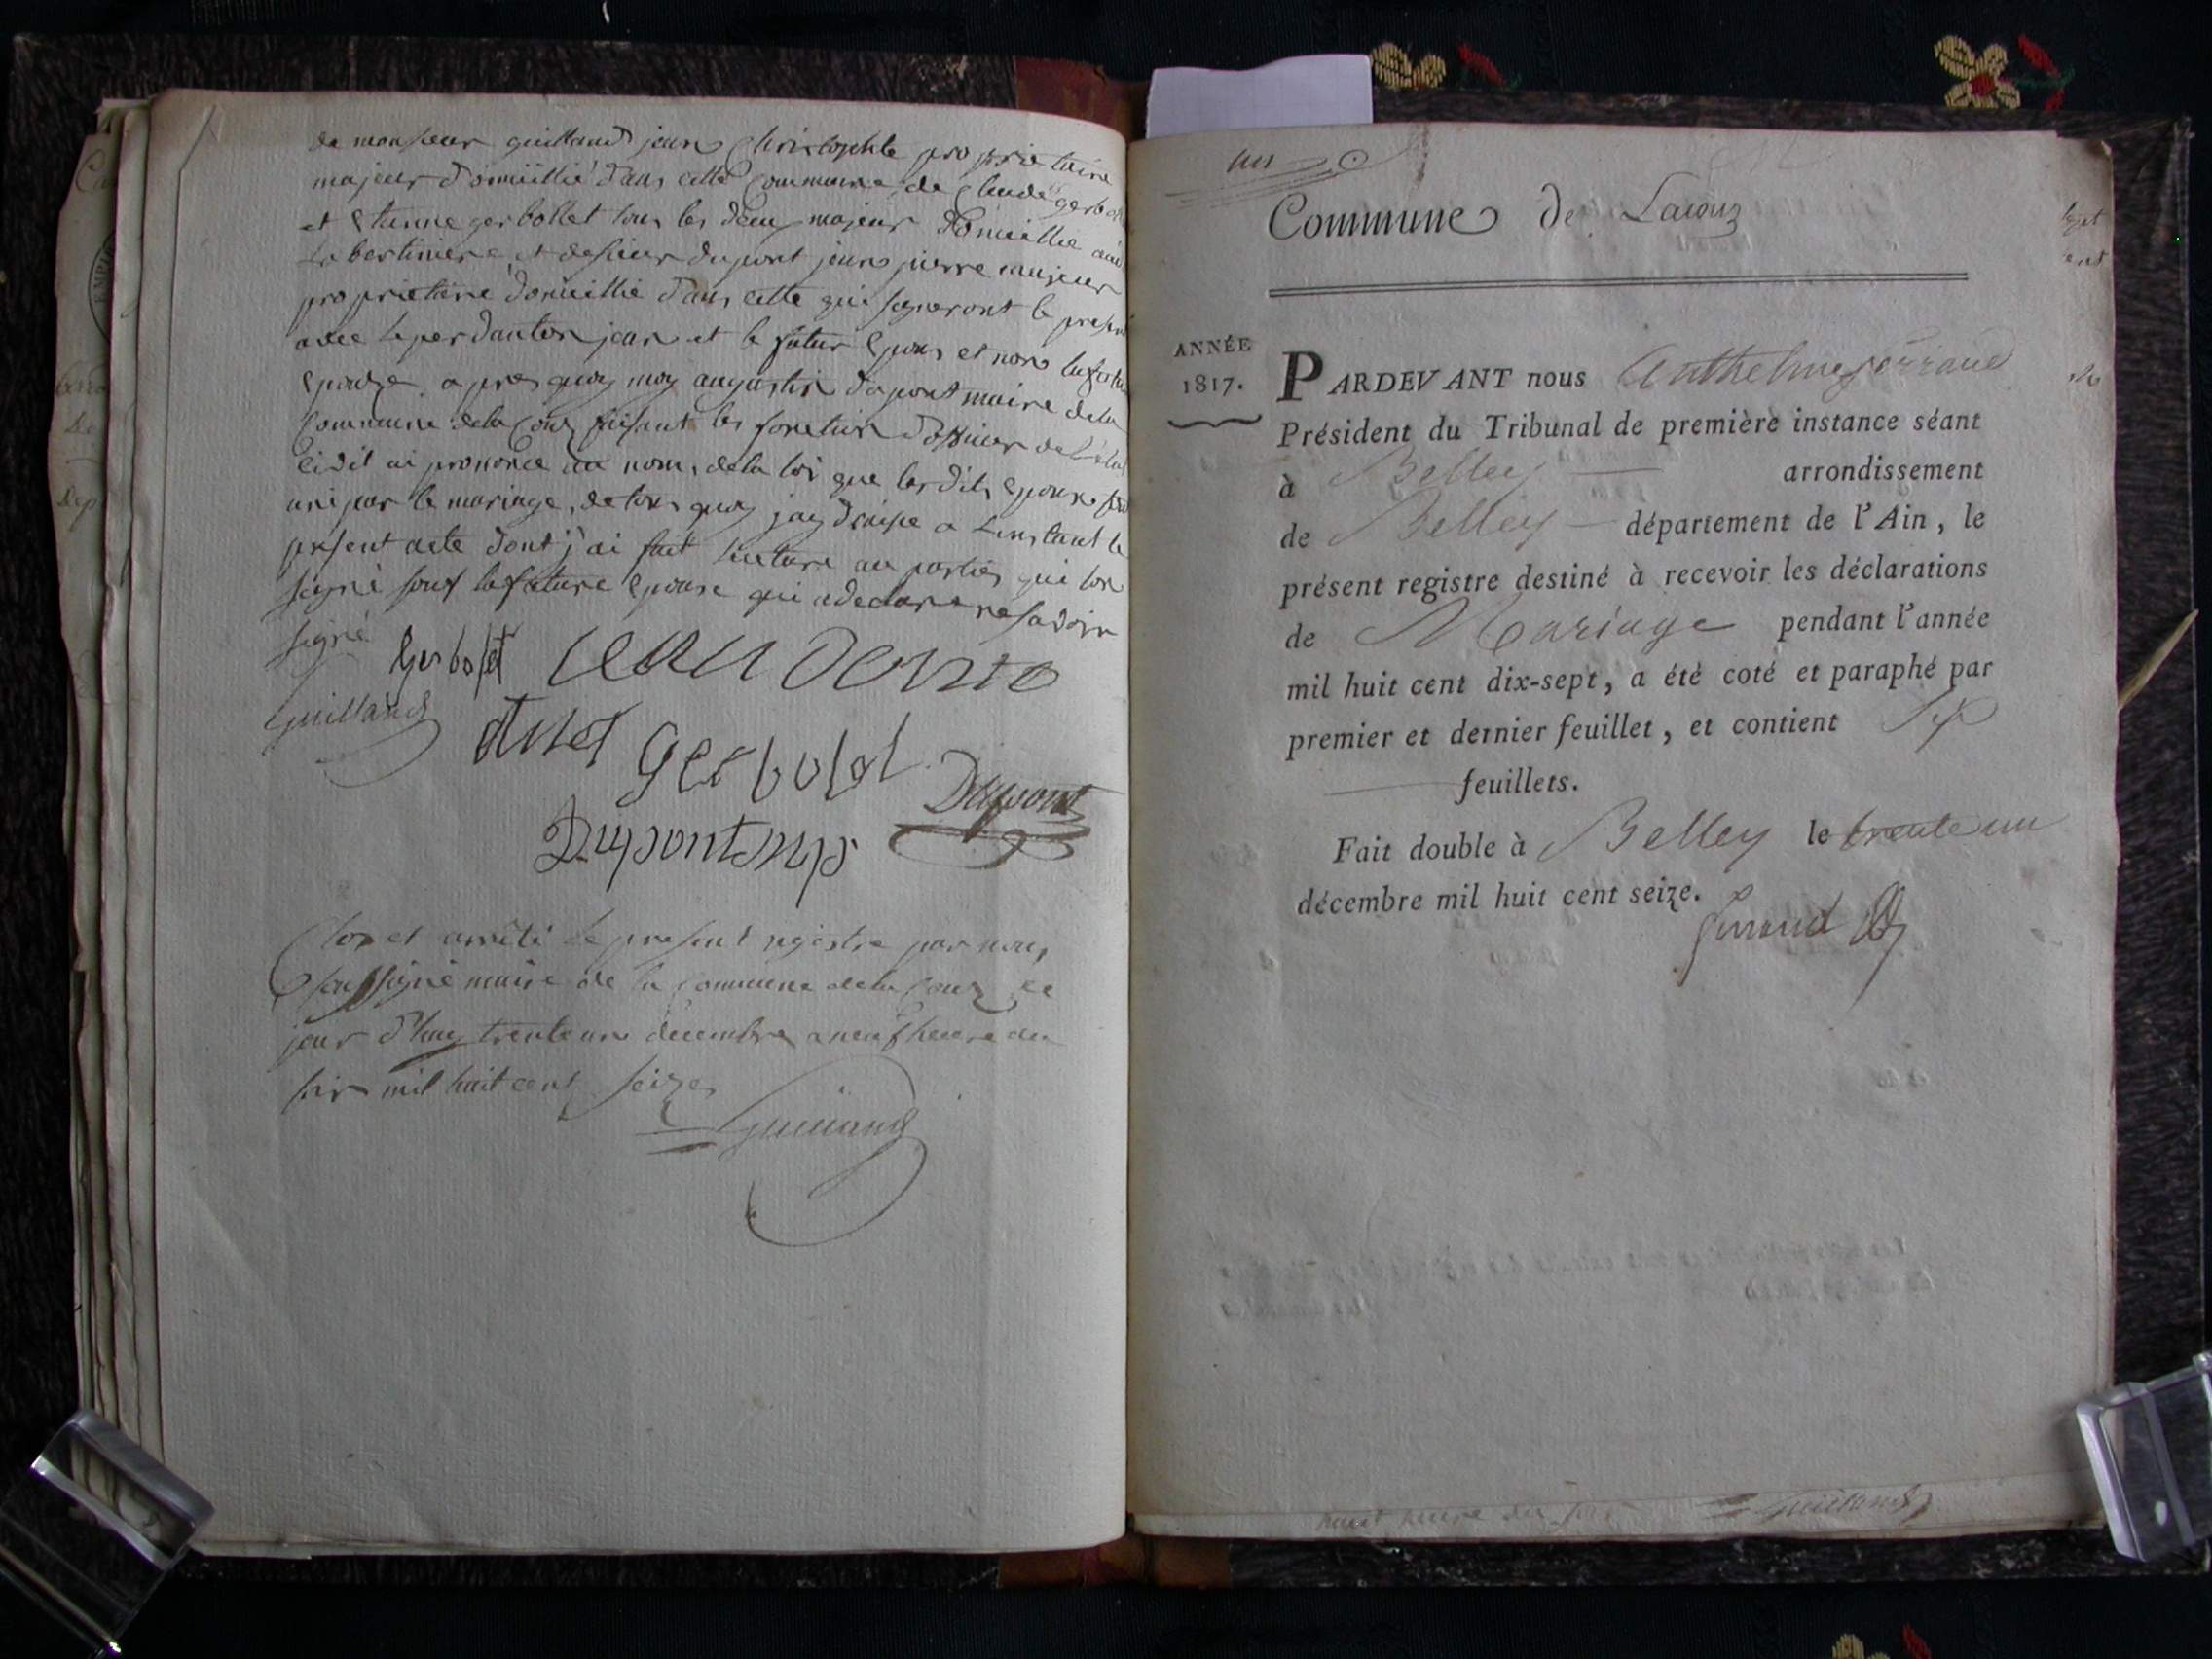 de monsieur guilland jean Christophle proprietaire
majeur domicillié dans cette commune, de Claude
et etienne gerbollet tous les deux majeur domicillié
la bertiniere et de sieur dupont jean pierre majeur
proprietaire domicillié dans cette qui signeront le
avec le per danton jean et le futur epoux et non la
epouze apres quoy moy augustin dupont maire de la
commune de la Couz faisant les fonction dofficier de
Civil ai prononcé au nom de la loi que lesdits epoux
uni par le mariage, de tous quoy jay drissé a Linstant le
présent acte dont j'ai fait lecture au parties qui lon
signé souf la future epouse qui a declaré ne savoir
signé
Gerbollet
Guilland
Gerbolet
Dupont
Dupont
Clos et arrêté le present registre par nous
soussigné maire de la commune de la Couz ce
jour d'huy trente un decembre a neuf heure du
soir mil huit cent seize
Guilland
Commune de Lacouz
ANNÉE
1817.
PARDEVANT nous Anthelme ferrand
Président du Tribunal de première instance séant
à Belley arrondissement
de Belley département de l'Ain, le
présent registre destiné à recevoir les déclarations
de Mariage pendant l'année
mil huit cent dix-sept, a été coté et paraphé par
premier et dernier feuillet, et contient
feuillets.
Fait double à Belley le trente un
décembre mil huit cent seize.
heure du soir
Guilland